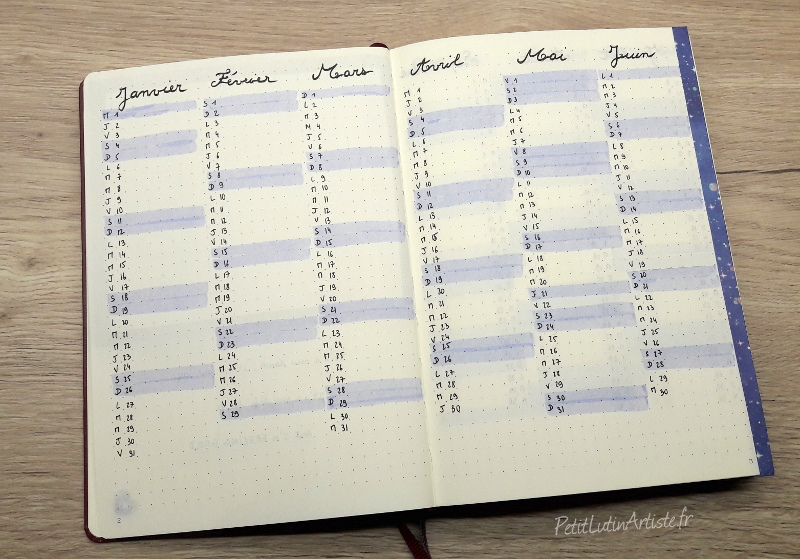 Janvier
M 1
J 2
V 3
S 4
D 5
L 6
M 7
M 8
J 9
V 10
S 11
D 12
L 13
M 14
M 15
J 16
V 17
S 18
D 19
L 20
M 21
M 22
J 23
V 24
S 25
D 26
L 27
M 28
M 29
J 30
V 31
Février
S 1
D 2
L 3
M 4
M 5
J 6
V 7
S 8
D 9
L 10
M 11
M 12
J 13
V 14
S 15
D 16
L 17
M 18
M 19
J 20
V 21
S 22
D 23
L 24
M 25
M 26
J 27
V 28
S 29
Mars
D 1
L 2
M 3
M 4
J 5
V 6
S 7
D 8
L 9
M 10
M 11
J 12
V 13
S 14
D 15
L 16
M 17
M 18
J 19
V 20
S 21
D 22
L 23
M 24
M 25
J 26
V 27
S 28
D 29
L 30
M 31
Avril
M 1
J 2
V 3
S 4
D 5
L 6
M 7
M 8
J 9
V 10
S 11
D 12
L 13
M 14
M 15
J 16
V 17
S 18
D 19
L 20
M 21
M 22
J 23
V 24
S 25
D 26
L 27
M 28
M 29
J 30
Mai
V 1
S 2
D 3
L 4
M 5
M 6
J 7
V 8
S 9
D 10
L 11
M 12
M 13
J 14
V 15
S 16
D 17
L 18
M 19
M 20
J 21
V 22
S 23
D 24
L 25
M 26
M 27
J 28
V 29
S 30
D 31
Juin
L 1
M 2
M 3
J 4
V 5
S 6
D 7
L 8
M 9
M 10
J 11
V 12
S 13
D 14
L 15
M 16
M 17
J 18
V 19
S 20
D 21
L 22
M 23
M 24
J 25
V 26
S 27
D 28
L 29
M 30
2
PetitLutinArtiste.fr